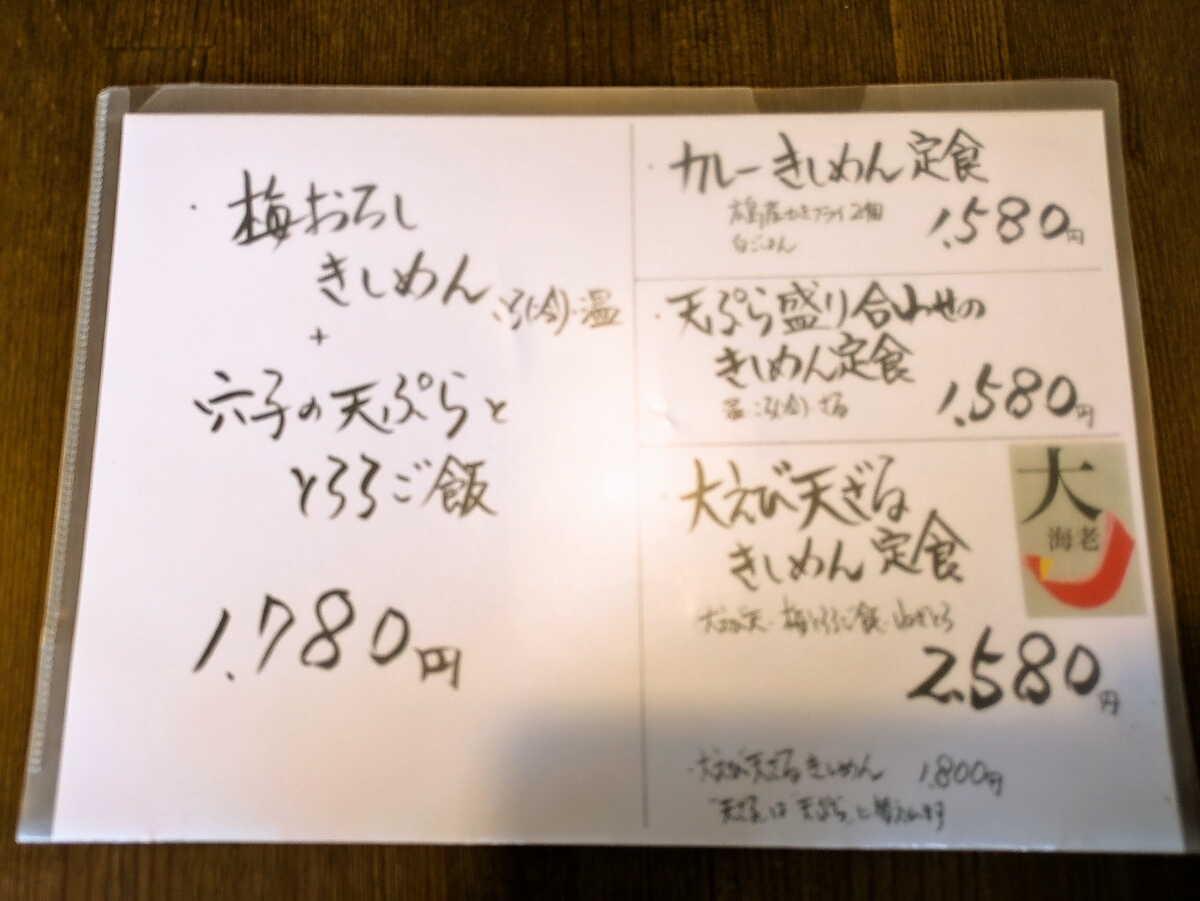 ・梅おろし
きしめん ころ(冷)・温
+
穴子の天ぷらと
とろろご飯
1,780円
・カレーきしめん定食
かきフライ2個
白ごはん
1,580円
・天ぷら盛り合わせの
きしめん定食
温・ころ(冷)・ざる
1,580円
・大えび天ざる
きしめん定食
大えび天・梅とろろご飯・
2,580円
大
海老
・大えび天ざるきしめん 1,800円
"天ざる"は"天ぷら"に